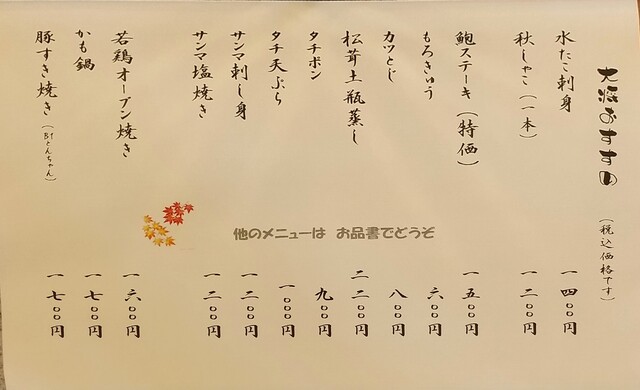 大将おすすめ
(税込価格です)
水たこ刺身 一四〇〇円
秋しゃこ(一本) 一二〇〇円
鮑ステーキ(特価) 一五〇〇円
もろきゅう 六〇〇円
カツとじ 八〇〇円
松茸土瓶蒸し 二二〇〇円
タチポン 九〇〇円
タチ天ぷら 一〇〇〇円
サンマ刺し身 一二〇〇円
サンマ塩焼き 一二〇〇円
若鶏オーブン焼き 一六〇〇円
かも鍋 一七〇〇円
豚すき焼き(Btとんちゃん) 一七〇〇円
他のメニューは お品書でどうぞ